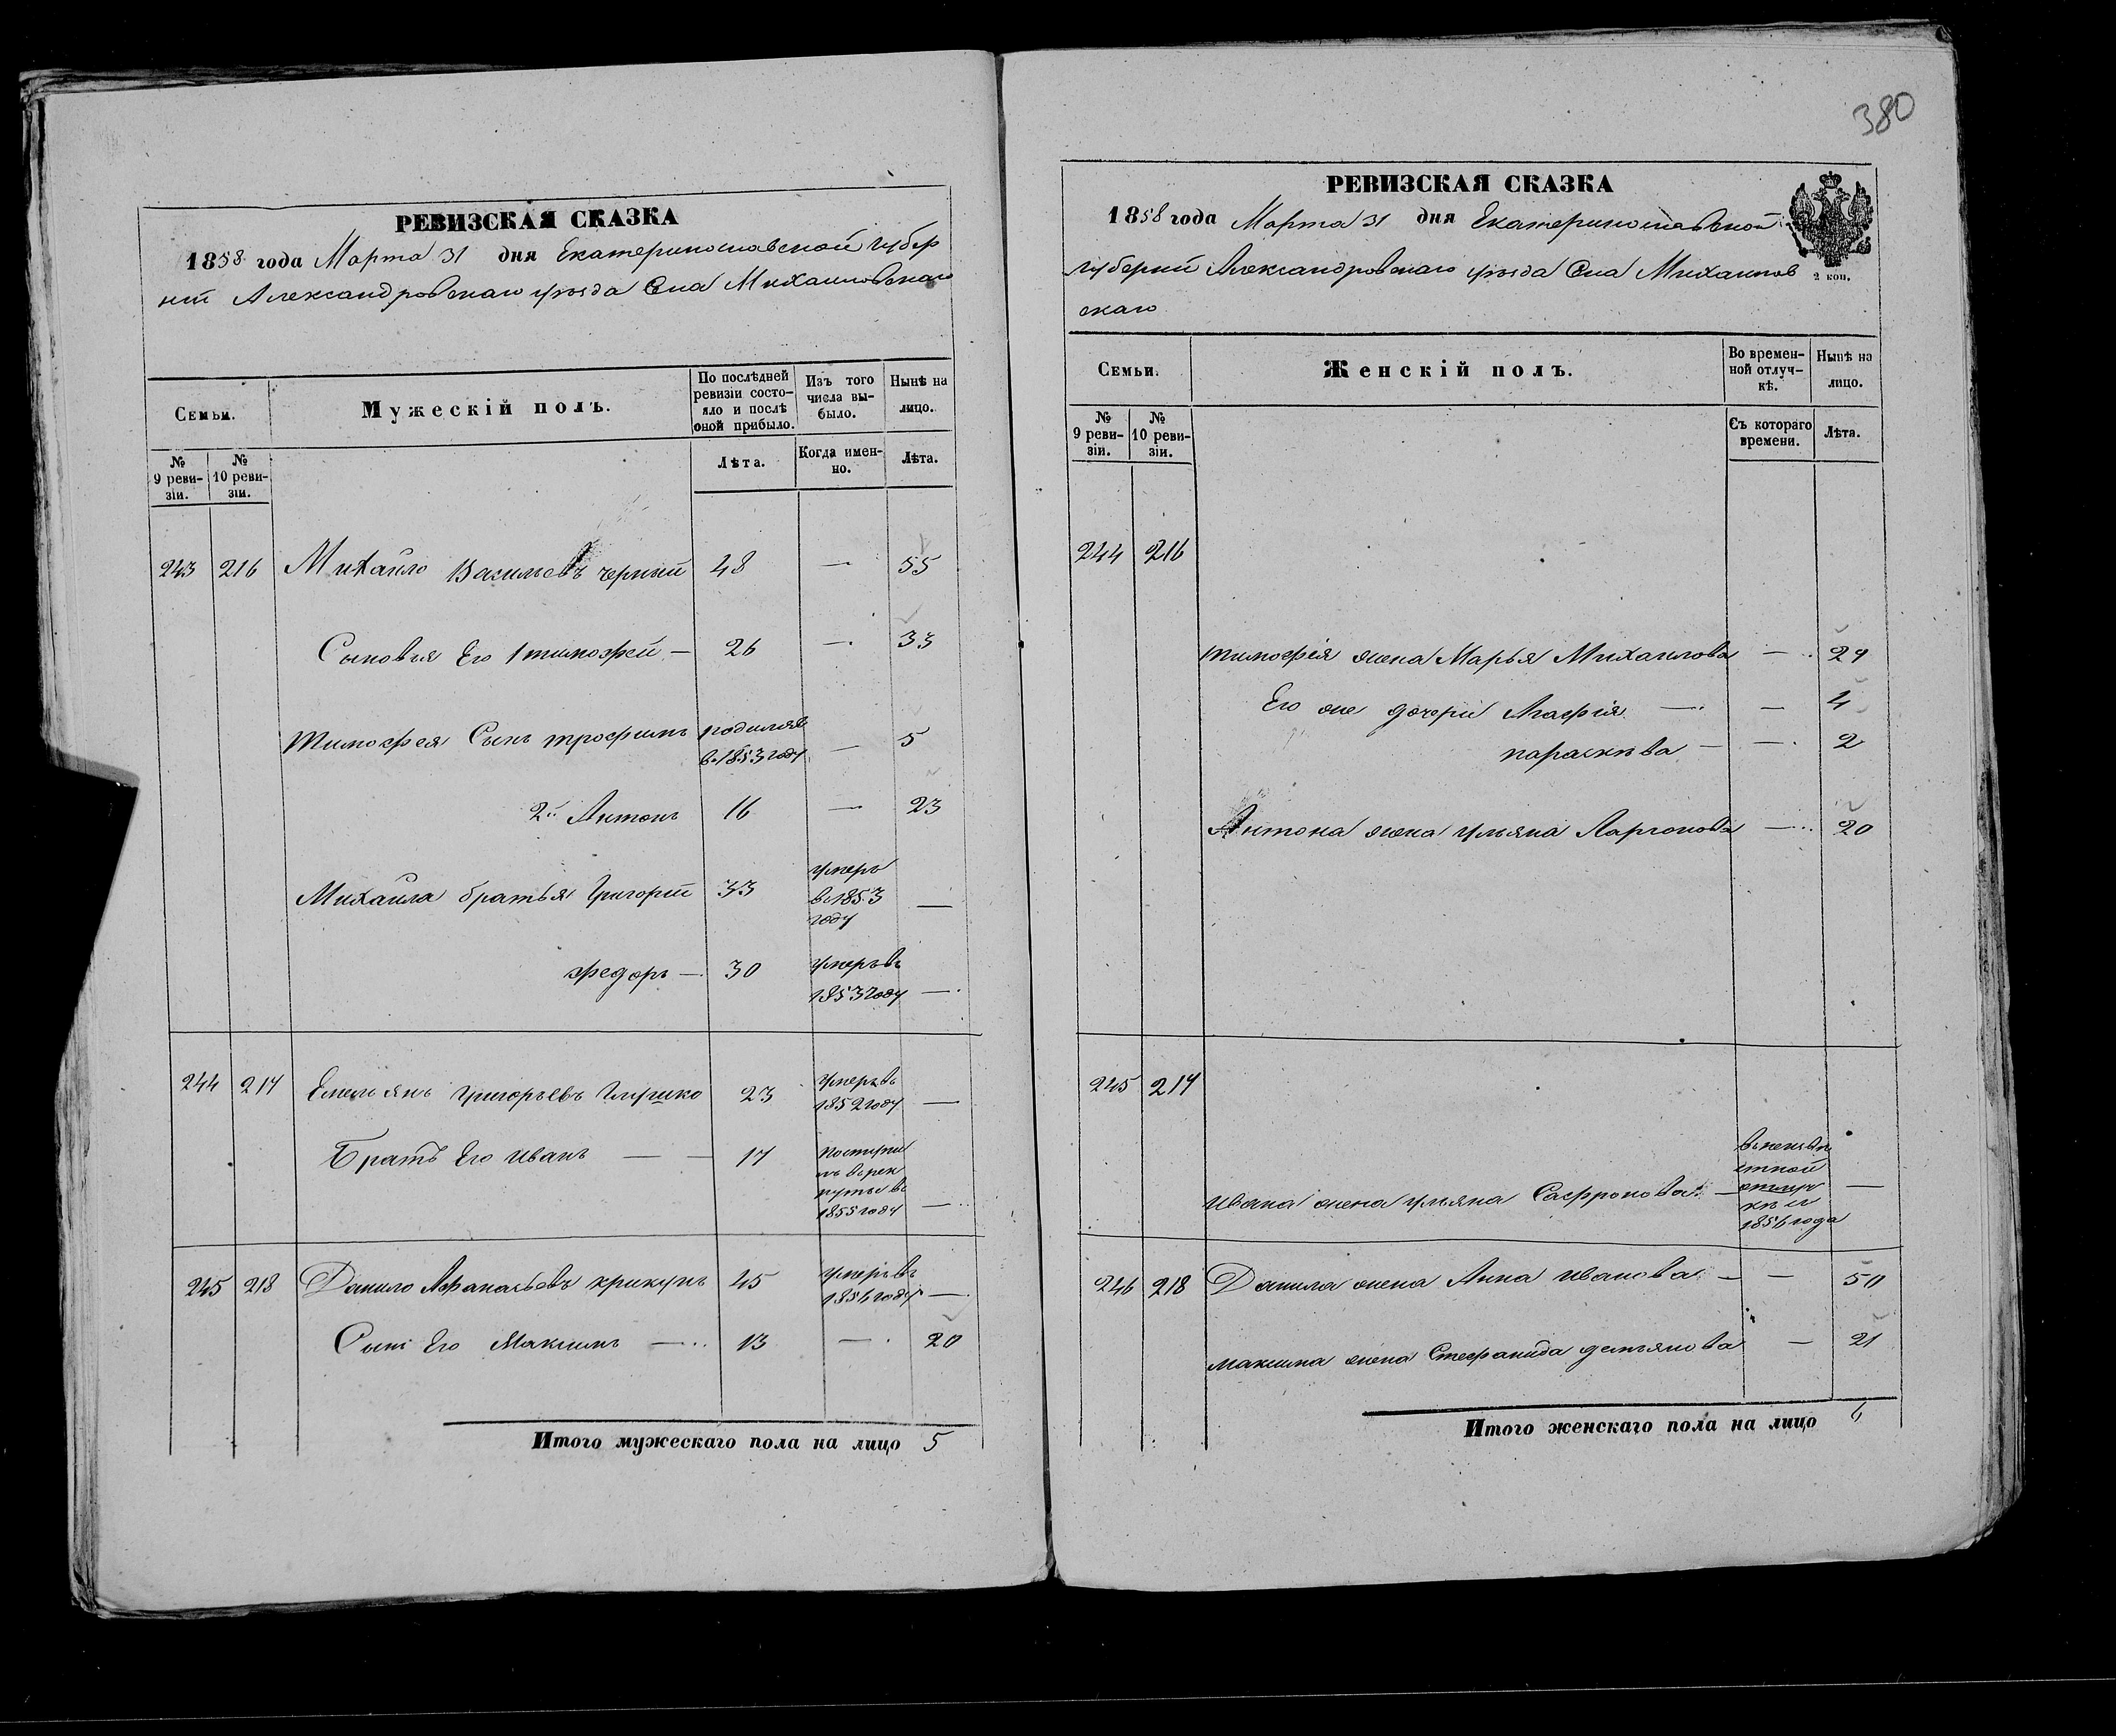 380
РЕВИЗСКАЯ СКАЗКА
1858 года Марта 31 дня Екатеринославской губер
ніи Александровскаго уѣзда Села Михайловскаго
Семьи.
Мужескій полъ.
По послѣдней ревизіи состояло и послѣ оной прибыло.
Изъ того числа выбыло.
Нынѣ на лицо.
№ 9 ревизіи.
№ 10 ревизіи.
Лѣта.
Когда именно.
Лѣта.
243 216 Михайло Васильевъ черный 48 — 55
Сыновья Его 1 тимофей — 26 — 33
Тимофея Сынъ трофимъ родился в 1853 году — 5
2й Антонъ 16 — 23
Михайла братья Григорій 33 умеръ в 1853 году —
федоръ — 30 умеръ въ 1853 году —
244 217 Емельянъ Григорьевъ 23 умеръ въ 1852 году —
Братъ Его Иванъ — — 17 въ рекруты въ 1855 году —
245 218 Данило Афанасьевъ крикунъ 45 умеръ въ 1856 году —
Сынъ Его Максимъ — 13 — 20
Итого мужескаго пола на лицо 5
РЕВИЗСКАЯ СКАЗКА
1858 года Марта 31 дня Екатеринославской
губерніи Александровскаго уѣзда Села Михайлов
скаго
2 коп.
Семьи.
Женскій полъ.
Во временной отлучкѣ.
Нынѣ на лицо.
№ 9 ревизіи.
№ 10 ревизіи.
Съ котораго времени.
Лѣта.
244 216
тимофея жена Марья Михаилова — 29
Его же дочери Агафія — — 4
параскѣва — — 2
Антона жена ульяна — 20
245 217
Ивана жена ульяна Сафронова — в отлучкѣ 1856 года —
246 218 Данила жена Анна Иванова — — 50
максима жена Стефанида демьянова — 21
Итого женскаго пола на лицо 6